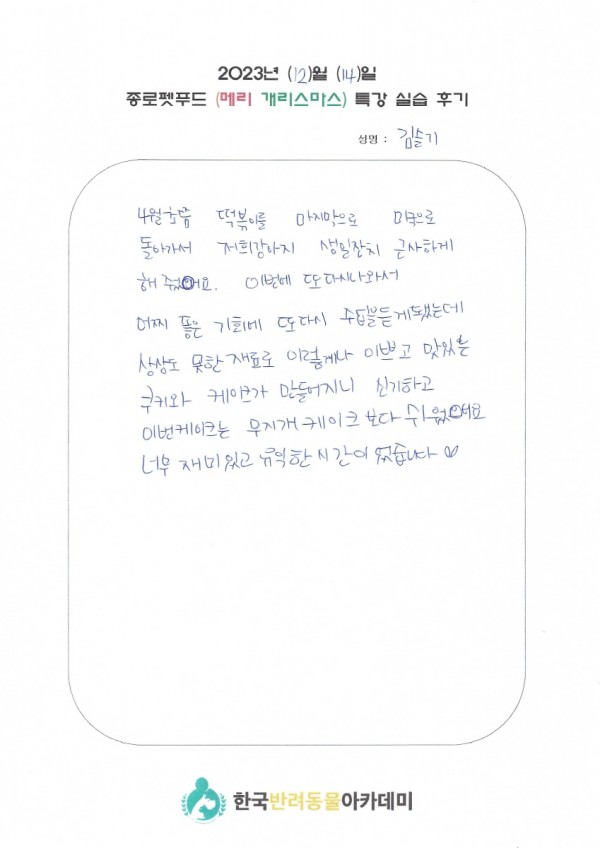 2023년 (12)월 (14)일
종로펫푸드 (메리 개리스마스) 특강 실습 후기
성명 : 김슬기
4월초쯤 떡볶이를 마지막으로 미국으로
돌아가서 저희강아지 생일잔치 근사하게
해 줬어요. 이번에 또 다시 나와서
어찌 좋은 기회에 또 다시 수업을듣게됐는데
상상도 못한 재료로 이렇게나 이쁘고 맛있는
쿠키와 케이크가 만들어지니 신기하고
이번케이크는 무지개 케이크 보다 쉬웠어요
너무 재미있고 유익한 시간이 었습니다 ♡
한국반려동물아카데미